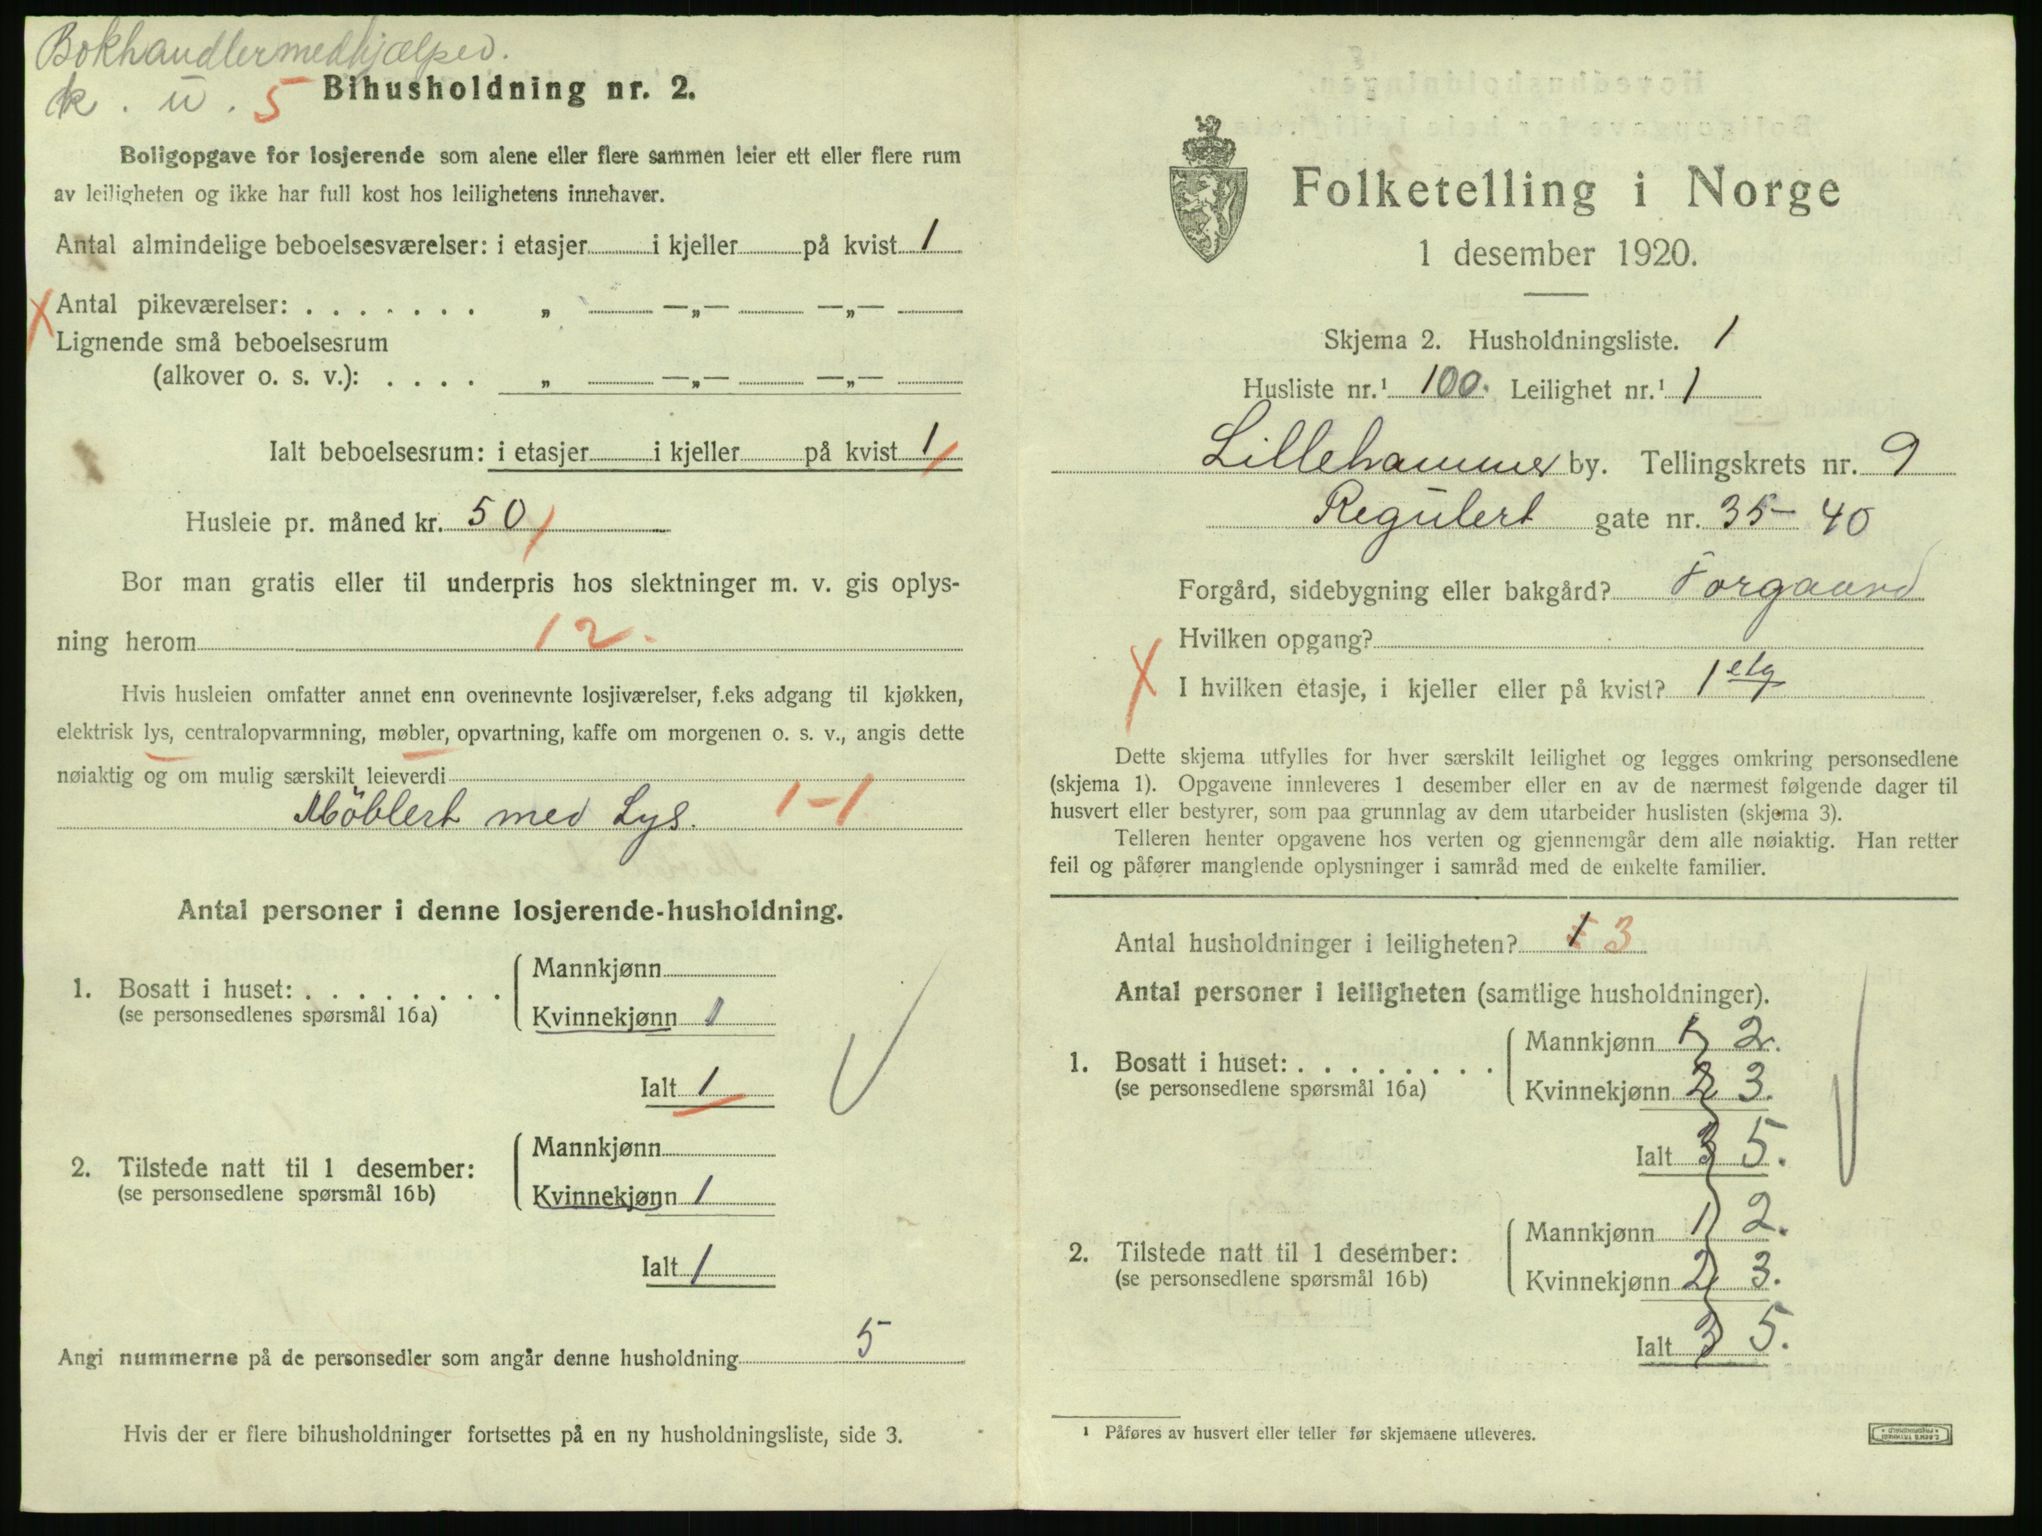 Bokhandlermedhjælper.
k. u. 5
Bihusholdning nr. 2.
Boligopgave for losjerende som alene eller flere sammen leier ett eller flere rum
av leiligheten og ikke har full kost hos leilighetens innehaver.
Antal almindelige beboelsesværelser: i etasjer i kjeller på kvist 1
Antal pikeværelser: . . . . . . . „ —„— —„—
Lignende små beboelsesrum
(alkover o. s. v.): . . . . „ —„— —„—
Ialt beboelsesrum: i etasjer i kjeller på kvist 1
Husleie pr. måned kr. 50
Bor man gratis eller til underpris hos slektninger m. v. gis oplys-
ning herom 12.
Hvis husleien omfatter annet enn ovennevnte losjiværelser, f.eks adgang til kjøkken,
elektrisk lys, centralopvarmning, møbler, opvartning, kaffe om morgenen o. s. v., angis dette
nøiaktig og om mulig særskilt leieverdi
Möblert med Lys. 1-1
Antal personer i denne losjerende-husholdning.
Mannkjønn
1. Bosatt i huset: . . . . . . . .
(se personsedlenes spørsmål 16a)
Kvinnekjønn 1
Ialt 1
Mannkjønn
2. Tilstede natt til 1 desember:
(se personsedlene spørsmål 16b)
Kvinnekjønn 1
Ialt 1
Angi nummerne på de personsedler som angår denne husholdning 5
Hvis der er flere bihusholdninger fortsettes på en ny husholdningsliste, side 3.
Folketelling i Norge
1 desember 1920.
Skjema 2. Husholdningsliste. 1
Husliste nr.¹ 100. Leilighet nr.¹ 1
Lillehammer by. Tellingskrets nr. 9
Regulert gate nr. 35- 40
Forgård, sidebygning eller bakgård? Forgaard
Hvilken opgang?
I hvilken etasje, i kjeller eller på kvist? 1 etg
Dette skjema utfylles for hver særskilt leilighet og legges omkring personsedlene
(skjema 1). Opgavene innleveres 1 desember eller en av de nærmest følgende dager til
husvert eller bestyrer, som paa grunnlag av dem utarbeider huslisten (skjema 3).
Telleren henter opgavene hos verten og gjennemgår dem alle nøiaktig. Han retter
feil og påfører manglende oplysninger i samråd med de enkelte familier.
Antal husholdninger i leiligheten? 1 3
Antal personer i leiligheten (samtlige husholdninger).
Mannkjønn 1 2.
1. Bosatt i huset: . . . . . . . .
(se personsedlene spørsmål 16a)
Kvinnekjønn 2 3.
Ialt 3 5.
Mannkjønn 1 2.
2. Tilstede natt til 1 desember:
(se personsedlene spørsmål 16b)
Kvinnekjønn 2 3.
Ialt 3 5.
¹ Påføres av husvert eller teller før skjemaene utleveres.